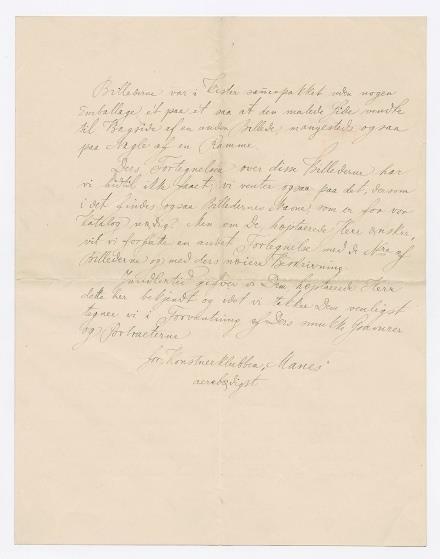 Billederne var i Kister sammenpakket uden nogen
Emballage et paa et saa at den malede Side vendte
til Bagside af en anden Billede, mangesteds ogsaa
paa Nagle af en Ramme.
Deres Fortegnelse over disse Billederne har
vi hidtil ikke faaet, vi venter ogsaa paa det, da som
i det findes ogsaa Billedernes Navne, som er for vor
Katalog nødig. Men om De højtærede Herr ønsker,
vil vi forfatte en anden Fortegnelse med de
Billederne og med ders Beskrivning.
Imidlertid Dem højtærede Herr
dette her og idet vi takke Dem venligst
tegner vi i Forventning af Ders
og Portraeterne
for Konstnerklubben, Manes'
aerebødigst